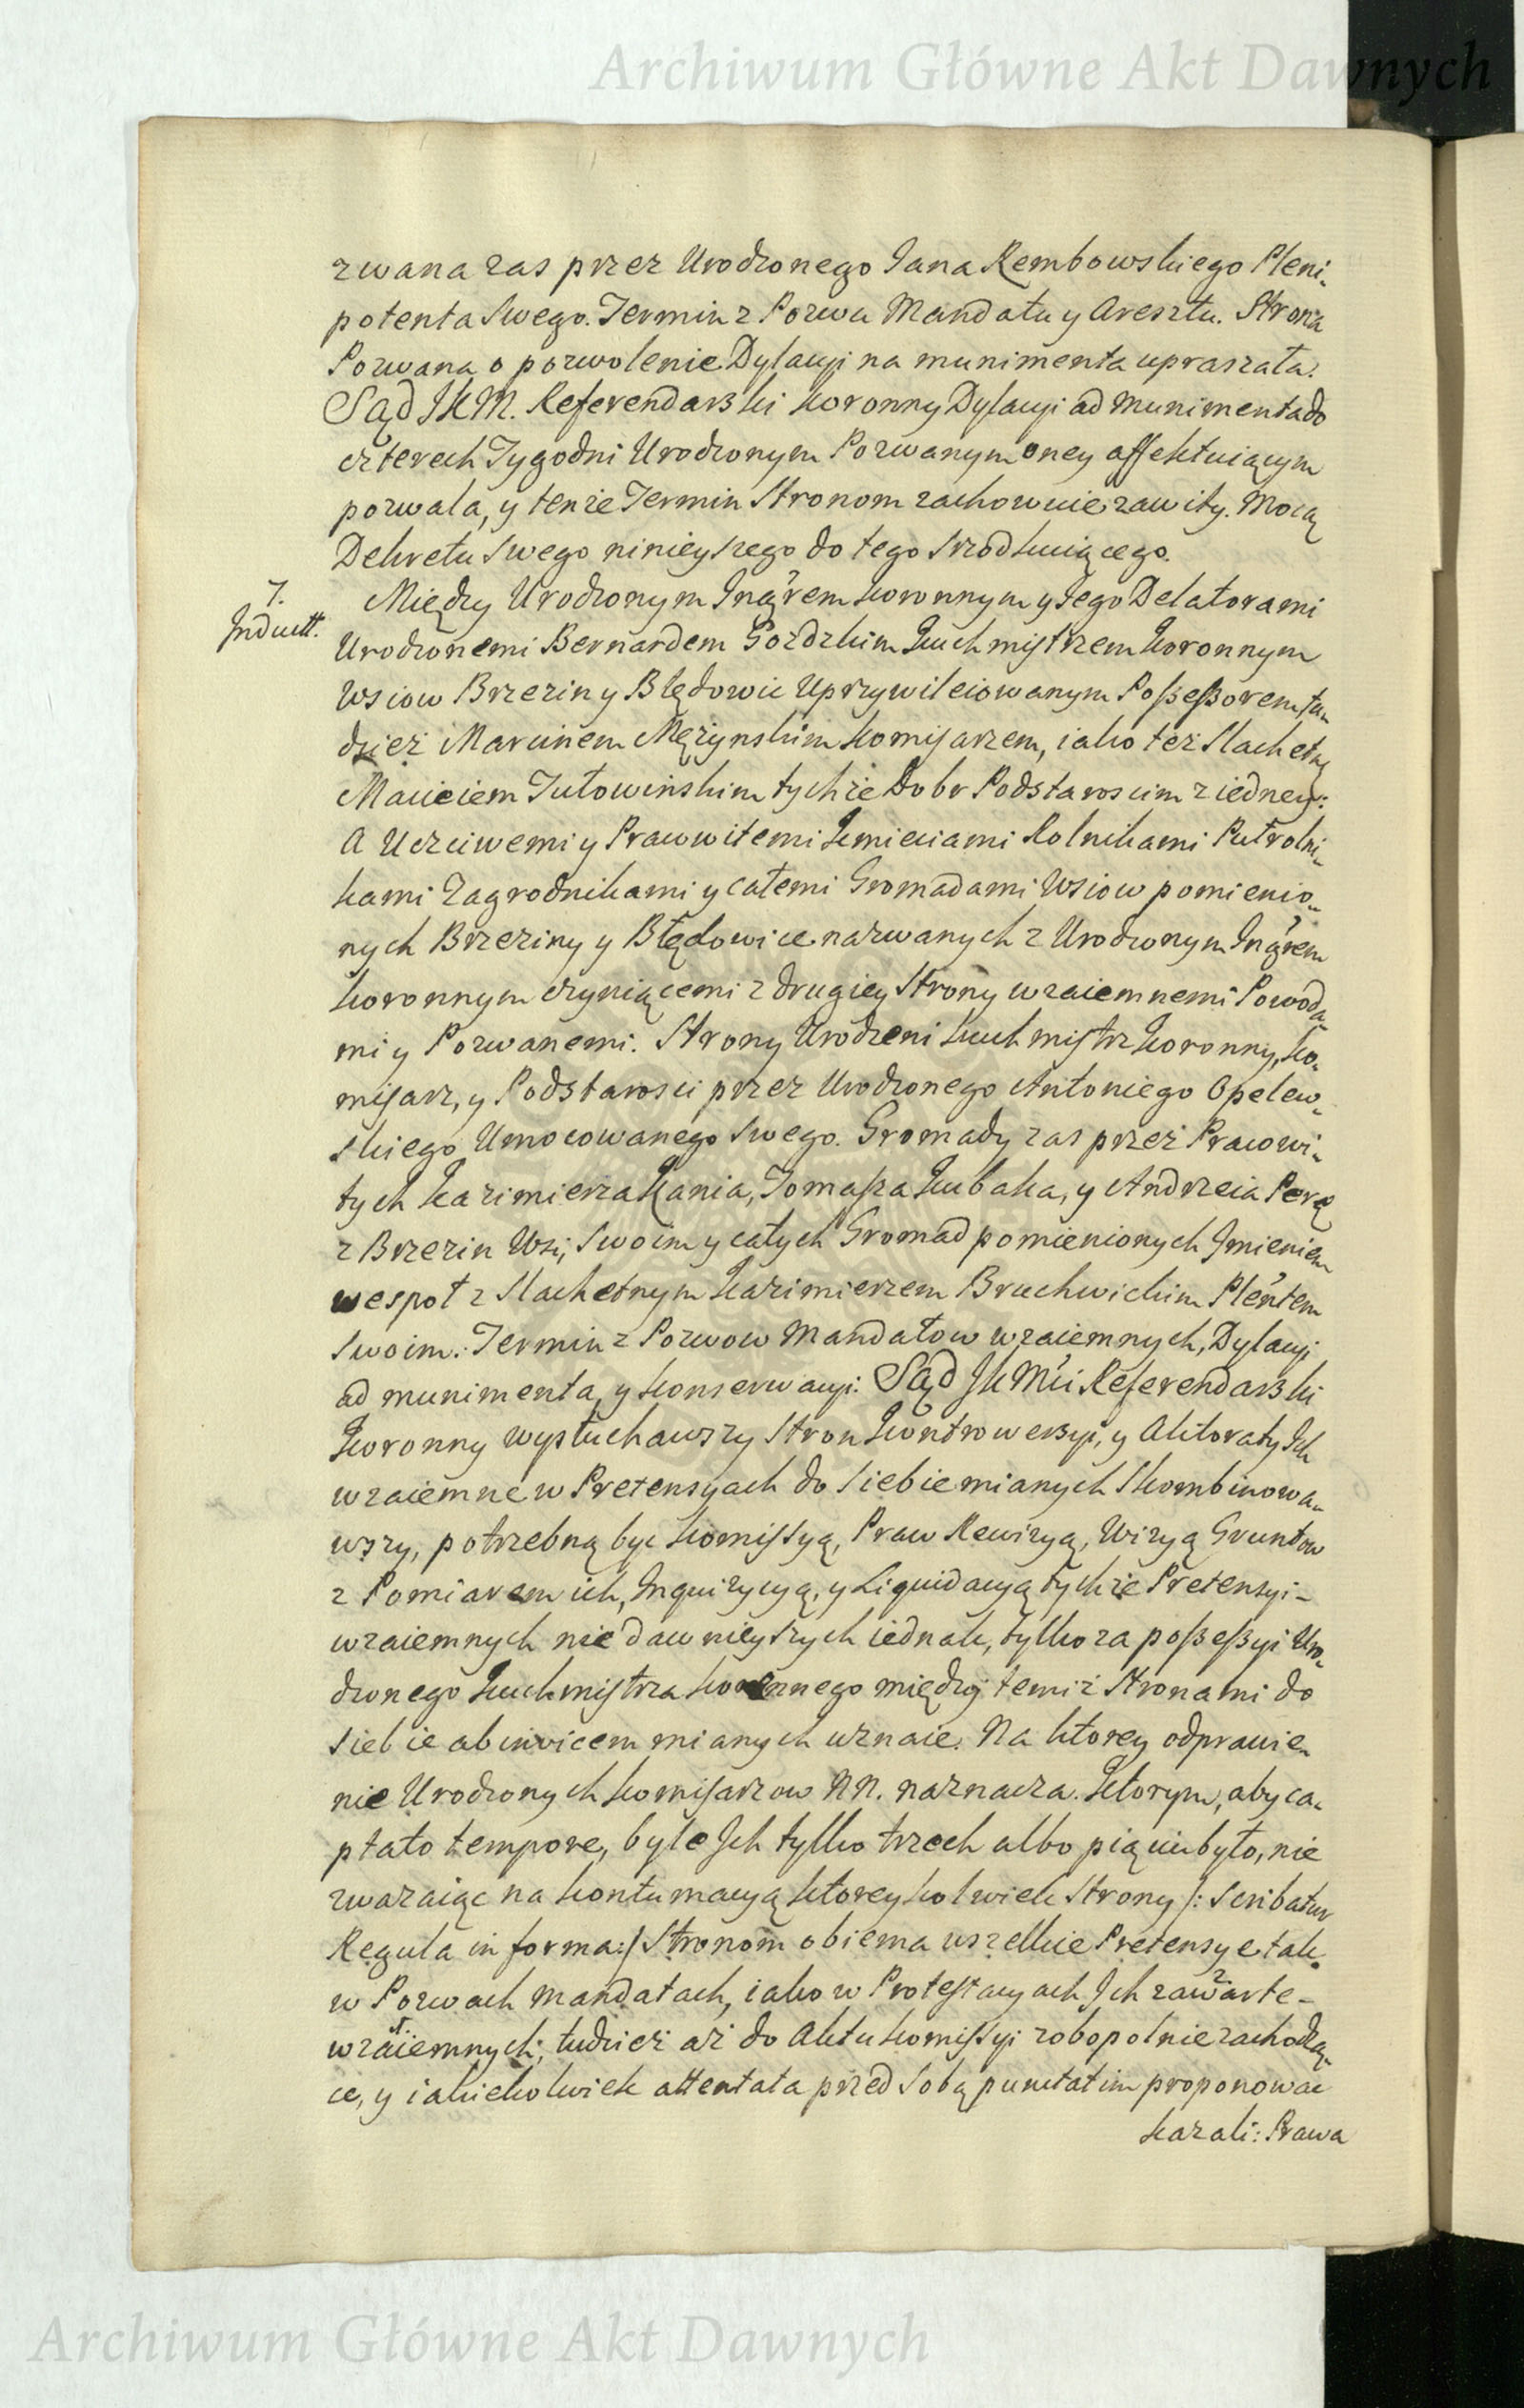 Archiwum Główne Akt Dawnych
zwana zas przez Urodzonego Jana Rembowskiego Pleni-
potenta Swego. Termin z Pozwu Mandatu y Aresztu. Strona
Pozwana o pozwolenie Dylacyi na munimenta upraszała.
Sąd JKM. Referendarski Koronny Dylacyi ad munimenta do
czterech Tygodni Urodzonym Pozwanym oney affektuiącym
pozwala, y tenże Termin Stronom zachowuie zawity. Mocą
Dekretu Swego ninieyszego do tego srzodkuiącego.
7.
Induckt.
Między Urodzonym Ingrem Koronnym y Jego Delatorami
Urodzonemi Bernardem Gozdzkim Kuchmistrzem Koronnym
Wsiow Brzeziny Błędowic Uprzywileiowanym Possessorem tu-
dzież Marcinem Mężynskim Komisarzem, iako też Slachetny
Macieiem Jutowinskim tychże Dobr Podstaroscim z iedney:
A Uczciwemi y Prawwitemi Kmieciami Rolnikami Pułrolni-
kami Zagrodnikami y całemi Gromadami Wsiow pomienio-
nych Brzeziny y Błędowice nazwanych z Urodzonym Ingrem
Koronnym czyniącemi z drugiey Strony wzaiemnemi Powoda-
mi y Pozwanemi. Strony Urodzeni Kuchmistrz Koronny, Ko-
misarz, y Podstarosci przez Urodzonego Antoniego Opelew-
skiego Umocowanego Swego. Gromady zas przez Pracowi-
tych Kazimierza Kania, Tomasza Kubaka, y Andrzeia Perę
z Brzezin Wsi, Swoim y całych Gromad pomienionych Imieniem
wespoł z Slachetnym Kazimierzem Bruchwickim Plentem
Swoim. Termin z Pozwow Mandatow wzaiemnych, Dylacyi
ad munimenta, y Konserwacyi. Sąd JKMci Referendarski
Koronny wysłuchawszy Stron Kontrowersyi, y Aktoraty Ich
wzaiemne w Pretensyach do siebie mianych Skombinowa-
wszy, potrzebną byc Komissyą, Praw Rewizyą, Wizyą Gruntow
z Pomiarem ich, Inquizycyą, y Liquidacyą tychże Pretensyi-
wzaiemnych nie dawnieyszych iednak, tylko za possessyi Uro-
dzonego Kuchmistrza Koronnego między temiż Stronami do
siebie ab invicem mianych uznaie. Na ktorey odprawie-
nie Urodzonych Komisarzow NN. naznacza. Ktorym, aby ca-
ptato tempore, byle Ich tylko trzech albo pięciu było, nie
zwazaiąc na kontumacyą ktoreykolwiek Strony /: Scribatur
Regula in forma:/ Stronom obiema wszelkie Pretensye tak
w Pozwach mandatach, iako w Protestacyach Ich zawarte-
wzaiemnych; tudzież aż do Aktu Komissyi zobopolnie zachodzą-
ce, y iakiekolwiek attentata przed Sobą punctatim proponowac
kazali: Prawa
Archiwum Główne Akt Dawnych